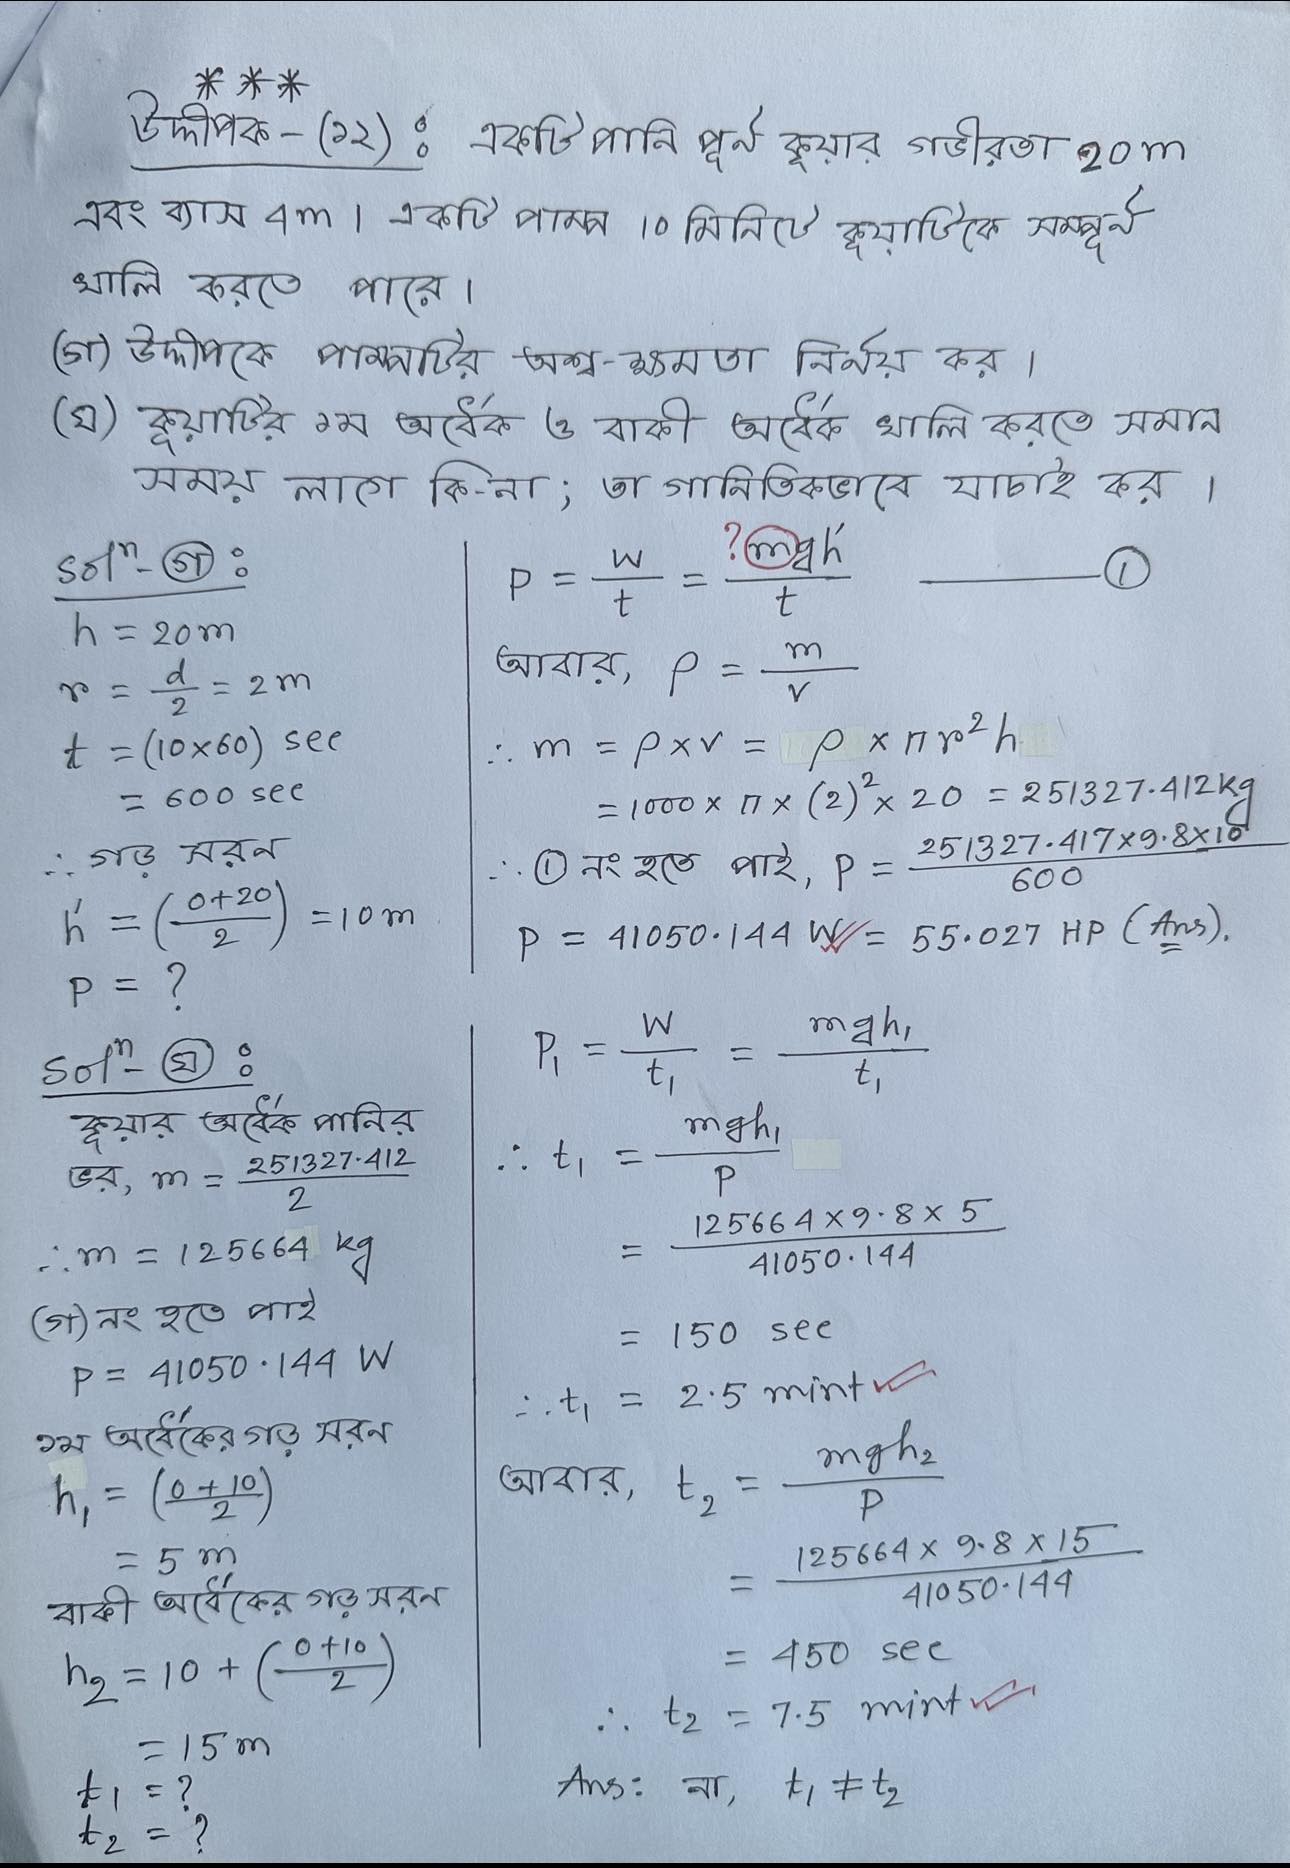 ***
উদ্দীপক-(১২) : একটি পানি পূর্ন কূয়ার গভীরতা 20m
এবং ব্যাস 4m। একটি পাম্প 10 মিনিটে কূয়াটিকে সম্পূর্ন
খালি করতে পারে।
(গ) উদ্দীপকে পাম্পটির অশ্ব-ক্ষমতা নির্নয় কর।
(ঘ) কূয়াটির ১ম অর্ধেক ও বাকী অর্ধেক খালি করতে সমান
সময় লাগে কি-না; তা গানিতিকভাবে যাচাই কর।
Solⁿ-(গ):
h = 20m
r = d/2 = 2m
t = (10×60) sec
= 600 sec
∴ গড় সরন
h′ = (0+20/2) = 10m
P = ?
P = W/t = ?mgh′/t ——— ①
আবার, ρ = m/v
∴ m = ρ×v = ρ×πr²h
= 1000×π×(2)²×20 = 251327.412kg
∴ ① নং হতে পাই, P = 251327.417×9.8×10/600
P = 41050.144 W = 55.027 HP (Ans).
Solⁿ-(ঘ):
কূয়ার অর্ধেক পানির
ভর, m = 251327.412/2
∴ m = 125664 kg
(গ) নং হতে পাই
P = 41050.144 W
১ম অর্ধেকের গড় সরন
h₁ = (0+10/2)
= 5m
বাকী অর্ধেকের গড় সরন
h₂ = 10 + (0+10/2)
= 15m
t₁ = ?
t₂ = ?
P₁ = W/t₁ = mgh₁/t₁
∴ t₁ = mgh₁/P
= 125664×9.8×5/41050.144
= 150 sec
∴ t₁ = 2.5 mint
আবার, t₂ = mgh₂/P
= 125664×9.8×15/41050.144
= 450 sec
∴ t₂ = 7.5 mint
Ans: না, t₁ ≠ t₂